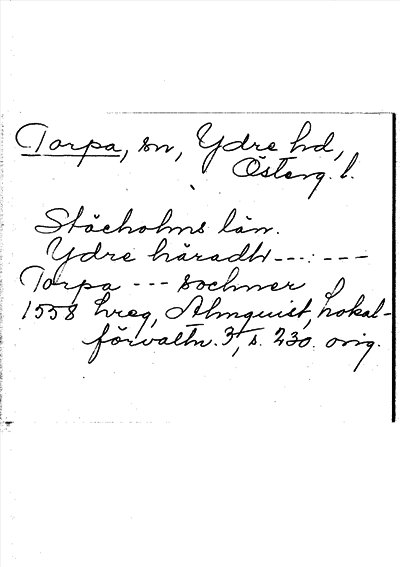 Torpa, sn, Ydre hd,
Österg. l.
Stächolms län.
Ydre häradh --- : ---
Torpa --- sochner
1558 hreg, Almquist, Lokal-
förvaltn. 3, s. 230. orig.